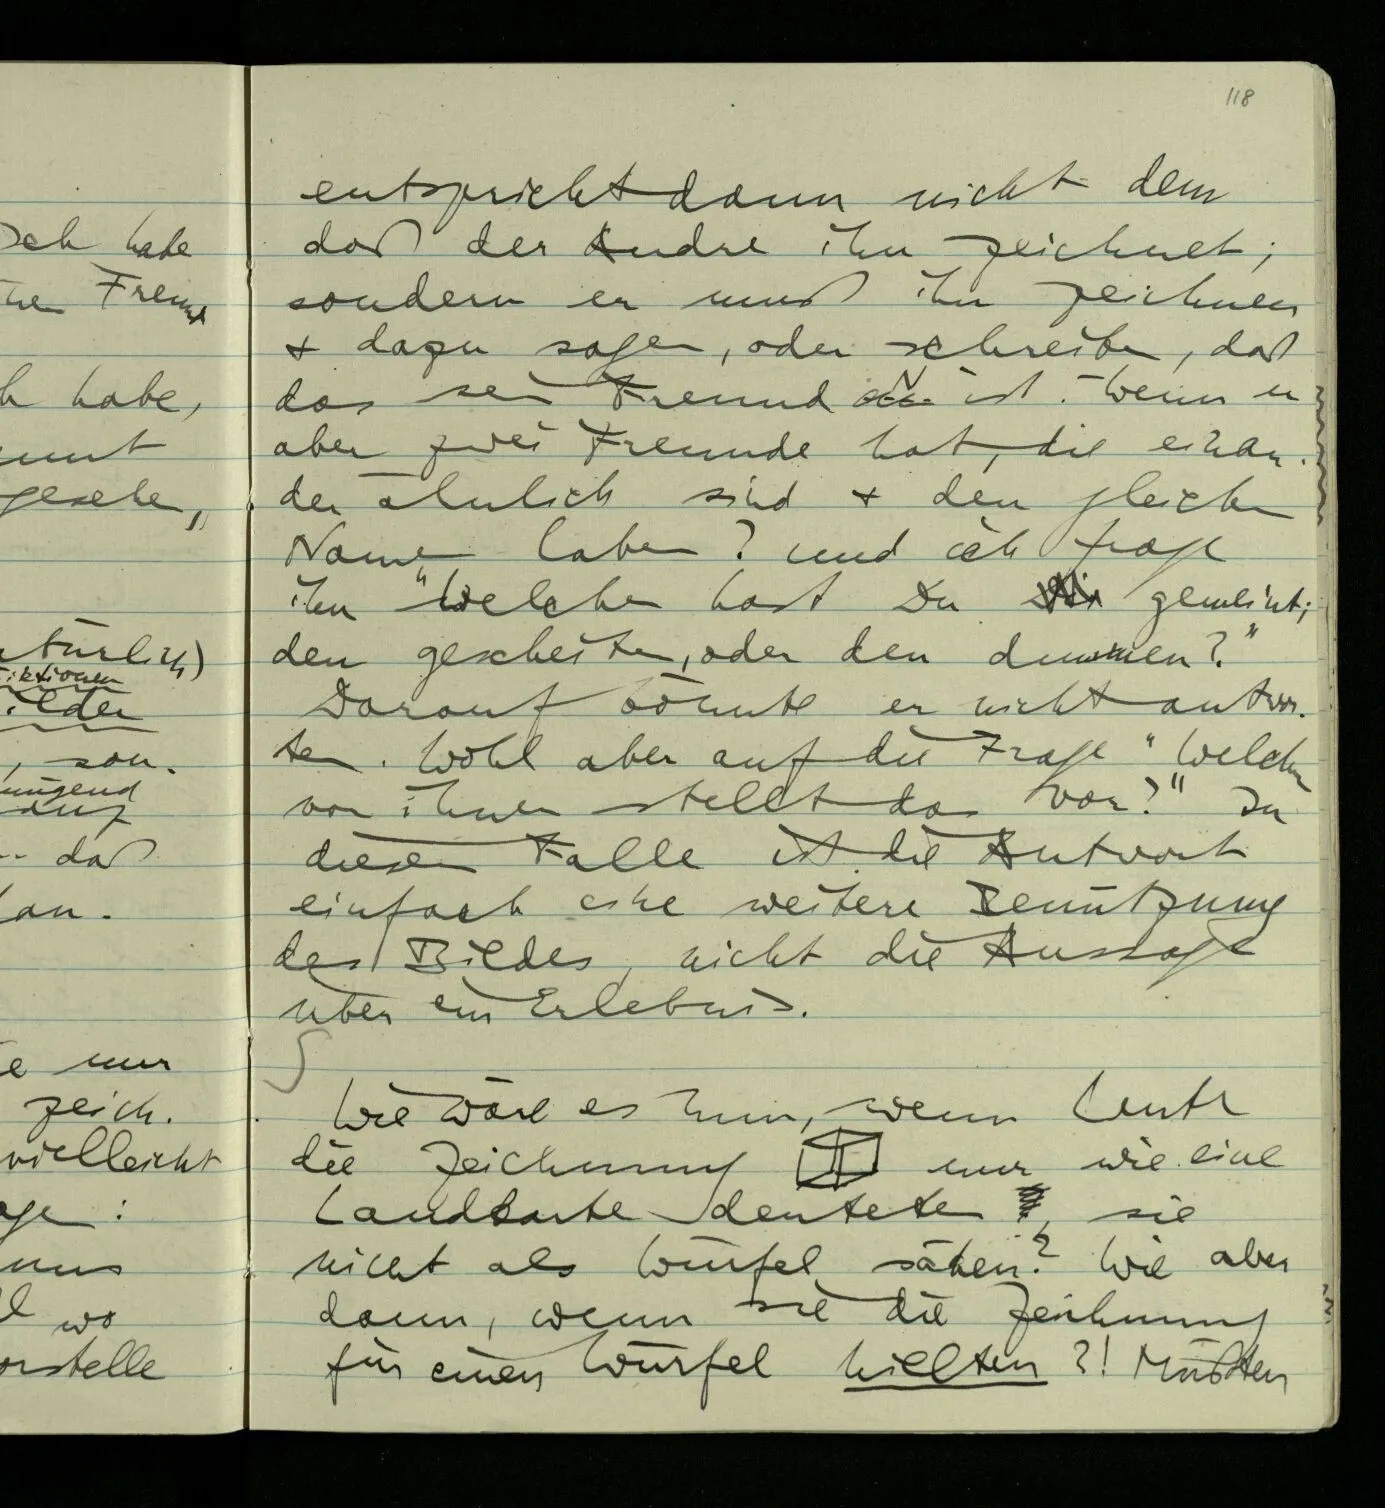 118
entspricht dann nicht dem
daß der Andre ihn zeichnet;
sondern er muß ihn zeichnen
& dazu sagen, oder schreiben, daß
das sein Freund N ist. Wenn er
aber zwei Freunde hat, die einan-
der ähnlich sind & den gleichen
Namen haben? und ich frage
ihn "Welchen hast Du gemeint;
den gescheiten, oder den dummen?"
Darauf könnte er nicht antwor-
ten. Wohl aber auf die Frage "Welchen
von ihnen stellt das vor?" In
diesem Falle ist die Antwort
einfach eine weitere Benützung
des Bildes, nicht die Aussage
über ein Erlebnis.
Wie wäre es nun, wenn Leute
die Zeichnung nur wie eine
Landkarte deuteten, sie
nicht als Würfel sähen? Wie aber
dann, wenn sie die Zeichnung
für einen Würfel hielten?! Müßten
Ich habe
Freund
habe,
gesehen,
türlich)
ilder
, son-
ügend
daß
an.
nur
zeich-
vielleicht
:
uns
wo
orstelle